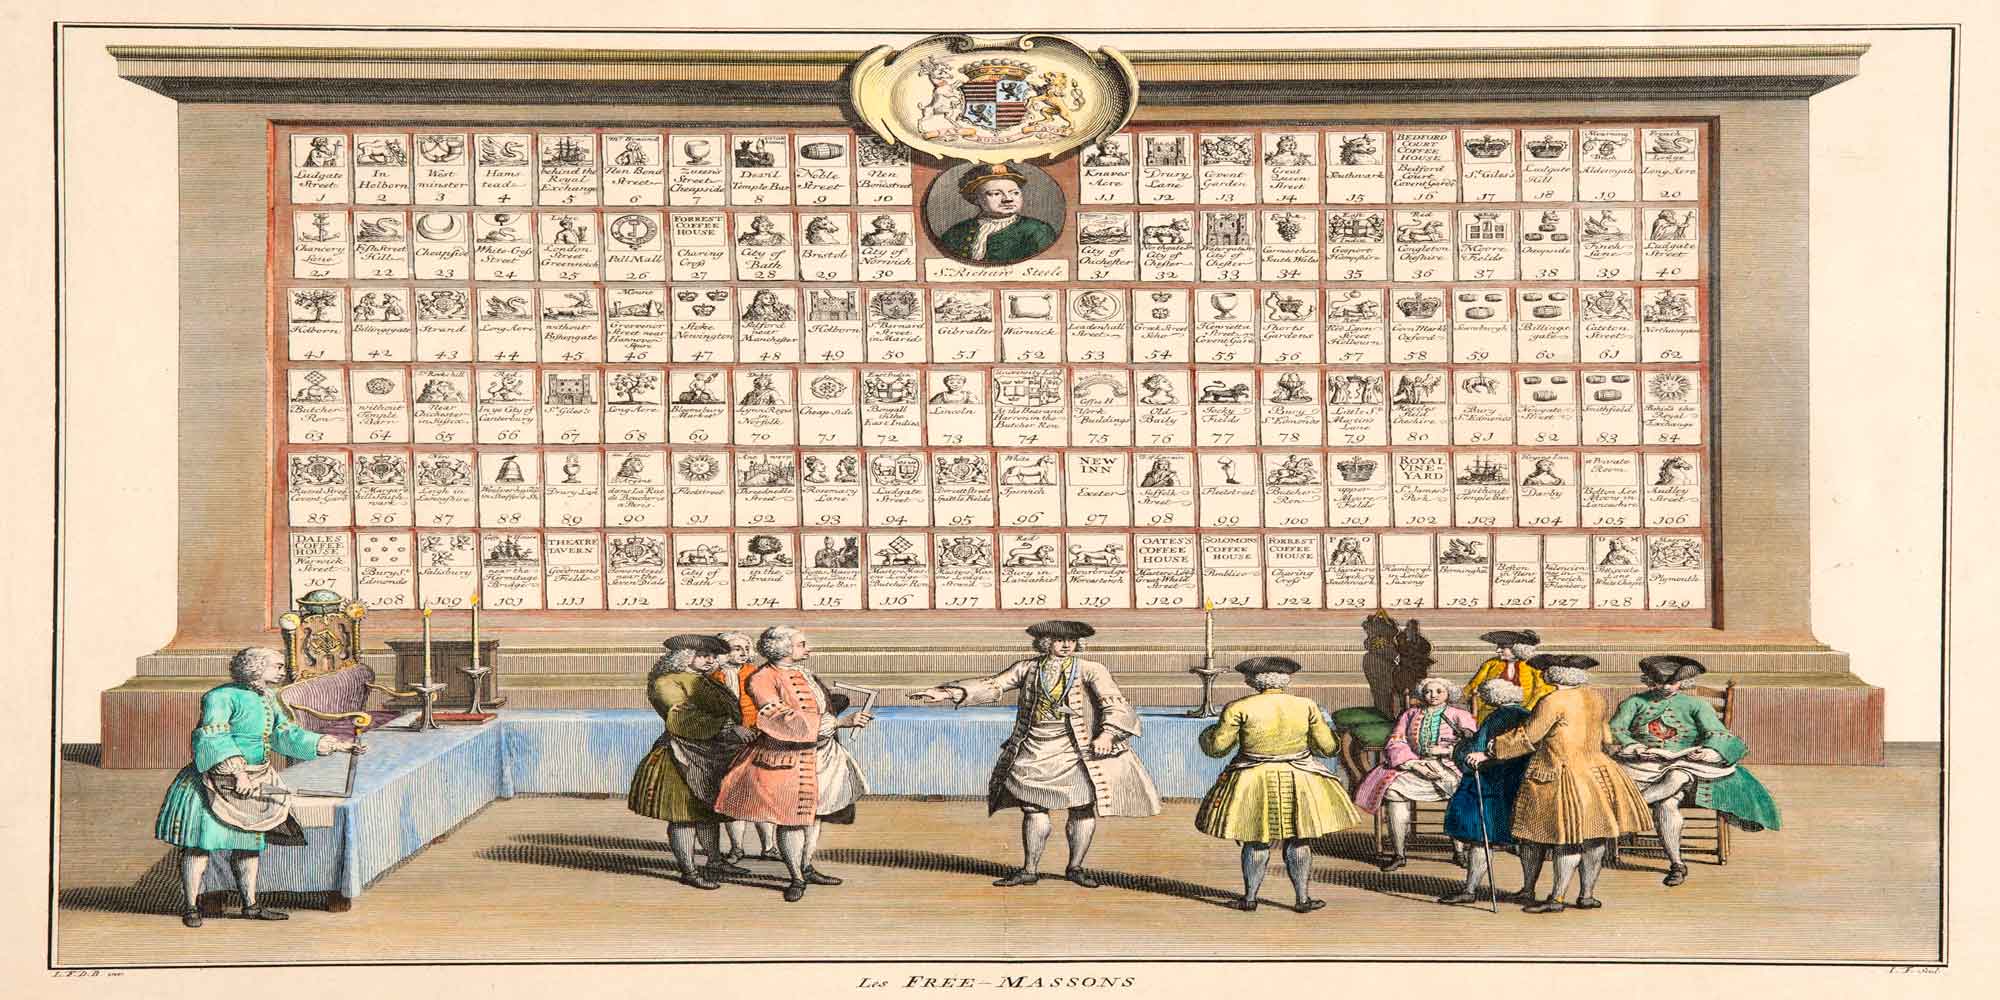 Ludgate Street 1
In Holborn 2
West minster 3
Hams tead 4
behind the Royal Exchange 5
New Bond Street 6
Queen's Street Cheapside 7
Devil Temple Bar 8
Noble Street 9
10
Knaves Acre 11
Drury Lane 12
Covent Garden 13
Great Queen Street 14
Southwark 15
BEDFORD COURT COFFEE HOUSE Bedford Court Covent Gard. 16
St. Giles's 17
Ludgate Hill 18
Aldersgate 19
French Lodge Long Acre 20
Sr. Richard Steele
Chancery Lane 21
Fish Street Hill 22
Cheapside 23
White-Cross Street 24
London Street Greenwich 25
Pall Mall 26
FORREST COFFEE HOUSE Charing Cross 27
City of Bath 28
Bristol 29
City of Norwich 30
City of Chichester 31
City of Chester 32
City of Chester 33
Carmarthen South Wales 34
East India Gosport Hampshire 35
Red Congleton Cheshire 36
Moore Fields 37
Cheapside 38
Finch Lane 39
Ludgate Street 40
Holborn 41
Billingsgate 42
Strand 43
Long Acre 44
without Bishopgate 45
Mount Grosvenor Street near Hannover Square 46
Stoke Newington 47
Salford near Manchester 48
Holborn 49
St. Bernard Street in Madrid 50
Gibralter 51
Warwick 52
Leadenhall Street 53
Greek Street Soho 54
Henrietta Street Covent Gard. 55
Shorts Gardens 56
Red Lyon Street Holbourn 57
Corn Mark. Oxford 58
59
Billings gate 60
Cateton Street 61
Northampton 62
Butcher Row 63
without Temple Barn 64
near Chichester in Sussex 65
Red In ye City of Canterbury 66
St. Giles's 67
Long Acre 68
Bloomsbury Market 69
Dukes Lynn Regis in Norfolk 70
Cheap side 71
East India Bengall in the East Indies 72
Lincoln 73
University Lodg At the Bear and Harrow in the Butcher Row 74
Coffee H York Buildings 75
Old Baily 76
Jocky Fields 77
Bury St. Edmonds 78
Little St. Martins Lane 79
Maccles Field Cheshire 80
Bury St. Edmonds 81
Newgate Street 82
Smithfield 83
Behind the Royal Exchange 84
Russel Street Covent Gard. 85
St. Margarets hill South wark 86
New Leigh in Lancashire 87
88
Drury Lane 89
a Louis d'Argent dans la Rue Boucherie a Paris 90
Fleetstreet 91
Antwerp Threedneedle Street 92
Rosemary Lane 93
Ludgate Street 94
Dorcett Street Spittle Fields 95
White Ipswich 96
NEW INN Exeter 97
Suffolk Street 98
Fleetstreet 99
Butcher Row 100
upper Moore Fields 101
ROYAL VINE-YARD St. James's Park 102
without Temple Bar 103
Virgins Inn Darby 104
a Private Room Bolton Lee Moors in Lancashire 105
Audley Street 106
DALES COFFEE HOUSE Warwick Street 107
Bury St. Edmonds 108
Salisbury 109
near the Hermitage Bridge 101
THEATRE TAVERN Goodmans Fields 111
Towerstreet near the Seven Dials 112
City of Bath 113
in the Strand 114
Scotts Masons Lodge Devil Temple Bar 115
Masters Masons Lodge Butcher Row 116
117
Red Bury in Lancashire 118
Stourbridge Worcestersh. 119
OATES'S COFFEE HOUSE Masters Lodg Great Whild Street 120
SOLOMONS COFFEE HOUSE Pimblico 121
FORREST COFFEE HOUSE Charing Cross 122
St. Saviours Dock Southwark 123
Hamburgh in Lower Saxony 124
Birmingham 125
Boston in New England 126
Valencien nes in French Flanders 127
White Chapel 128
Masons Plymouth 129
L. F. D. B. inv.
Les FREE-MASSONS
I. F. Scul.